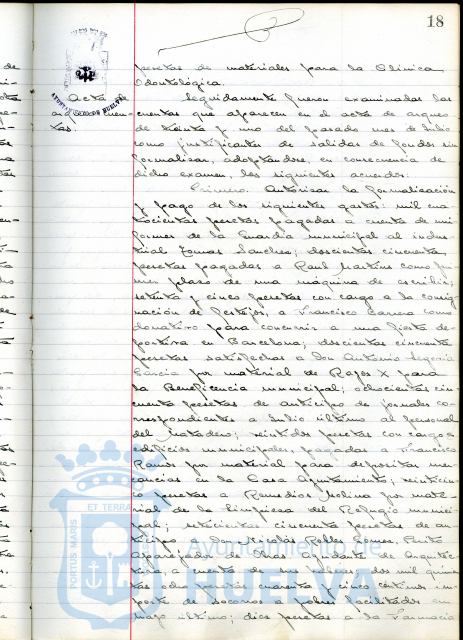 18
pesetas de materiales para la Clínica
Odontológica.
Acta de
arqueo cuentas.
Seguidamente fueron examinadas las
cuentas que aparecen en el acta de arqueo
de treinta y uno del pasado mes de Julio
como justificantes de salidas de fondos sin
formalizar, adoptándose, en consecuencia de
dicho examen, los siguientes acuerdos:
Primero. Autorizar la formalización
y pago de los siguientes gastos: mil cua-
trocientas pesetas pagadas a cuenta de uni-
formes de la Guardia municipal al indus-
trial Tomas Sanchez; doscientas cincuenta
pesetas pagadas a Raul Martins como pri-
mer plazo de una máquina de escribir;
setenta y cinco pesetas con cargo a la consig-
nación de festejos, a Francisco Barrera como
donativo para concurrir a una fiesta de-
portiva en Barcelona; doscientas cincuenta
pesetas satisfechas a Don Antonio Segovia
Garcia por material de Rayos X para
la Beneficencia municipal; ochocientas cin-
cuenta pesetas de anticipo de jornales co-
rrespondientes a Julio último al personal
del Matadero; veintidos pesetas con cargo a
edificios municipales, pagadas a Francisco
Ramos por material para depositar mer-
cancias en la Casa Ayuntamiento; veinticin-
co pesetas a Remedios Molina por mate-
rial de la limpieza del Refugio munici-
pal; setecientas cincuenta pesetas de an-
ticipo a Don Nicolas Robles Gomez, Perito
Aparejador de Obras Ayudante de Arquitec-
tura a cuenta de sus haberes; dos mil quinien-
tas ocho pesetas cuarenta y cinco céntimos im-
porte de socorros a pobres facilitados en
Mayo último; diez pesetas a la Farmacia
PORTUS MARIS ET TERRA
Ayuntamiento de
HUELVA